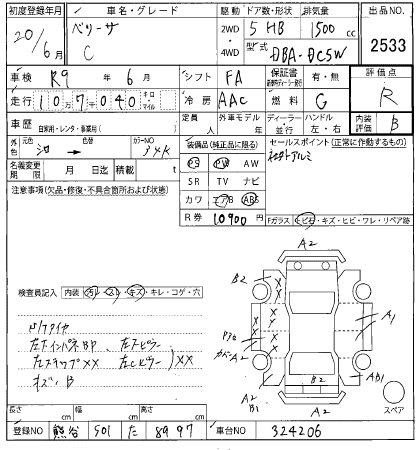 初度登録年月
20/6月
車名・グレード
ベリーサ
C
駆動
2WD
・
4WD
ドア数・形状
5 HB
排気量
1500 cc
型式
DBA-DC5W
出品NO.
2533
車検 R9年 6月
シフト FA
保証書 有・無
評価点
R
走行 107040 キロ マイル
冷房 AAC
燃料 G
車歴 自家用・レンタ・事業用( )
定員 人
外車モデル 年
ディーラー・並行
ハンドル 左・右
内装評価 B
外色
元色
シロ →
色替
カラーNO
34K
装備品(純正品に限る)
PS PW AW
SR TV ナビ
カワ エアB ABS
セールスポイント(正常に作動するもの)
社外アルミ
名義変更期限 月 日迄
積載 t
R券 10900
注意事項(欠品・修復・不具合箇所および状態)
Fガラス トビ石・キズ・ヒビ・ワレ・リペア跡
検査員記入 内装 汚れ・スレ・キズ・キレ・コゲ・穴
A2
B2
A1
A2
B2
AB1
A2
B1
A2
スペア
長さ cm
幅 cm
高さ cm
登録NO 熊谷 501 た 8997
車台NO 324206